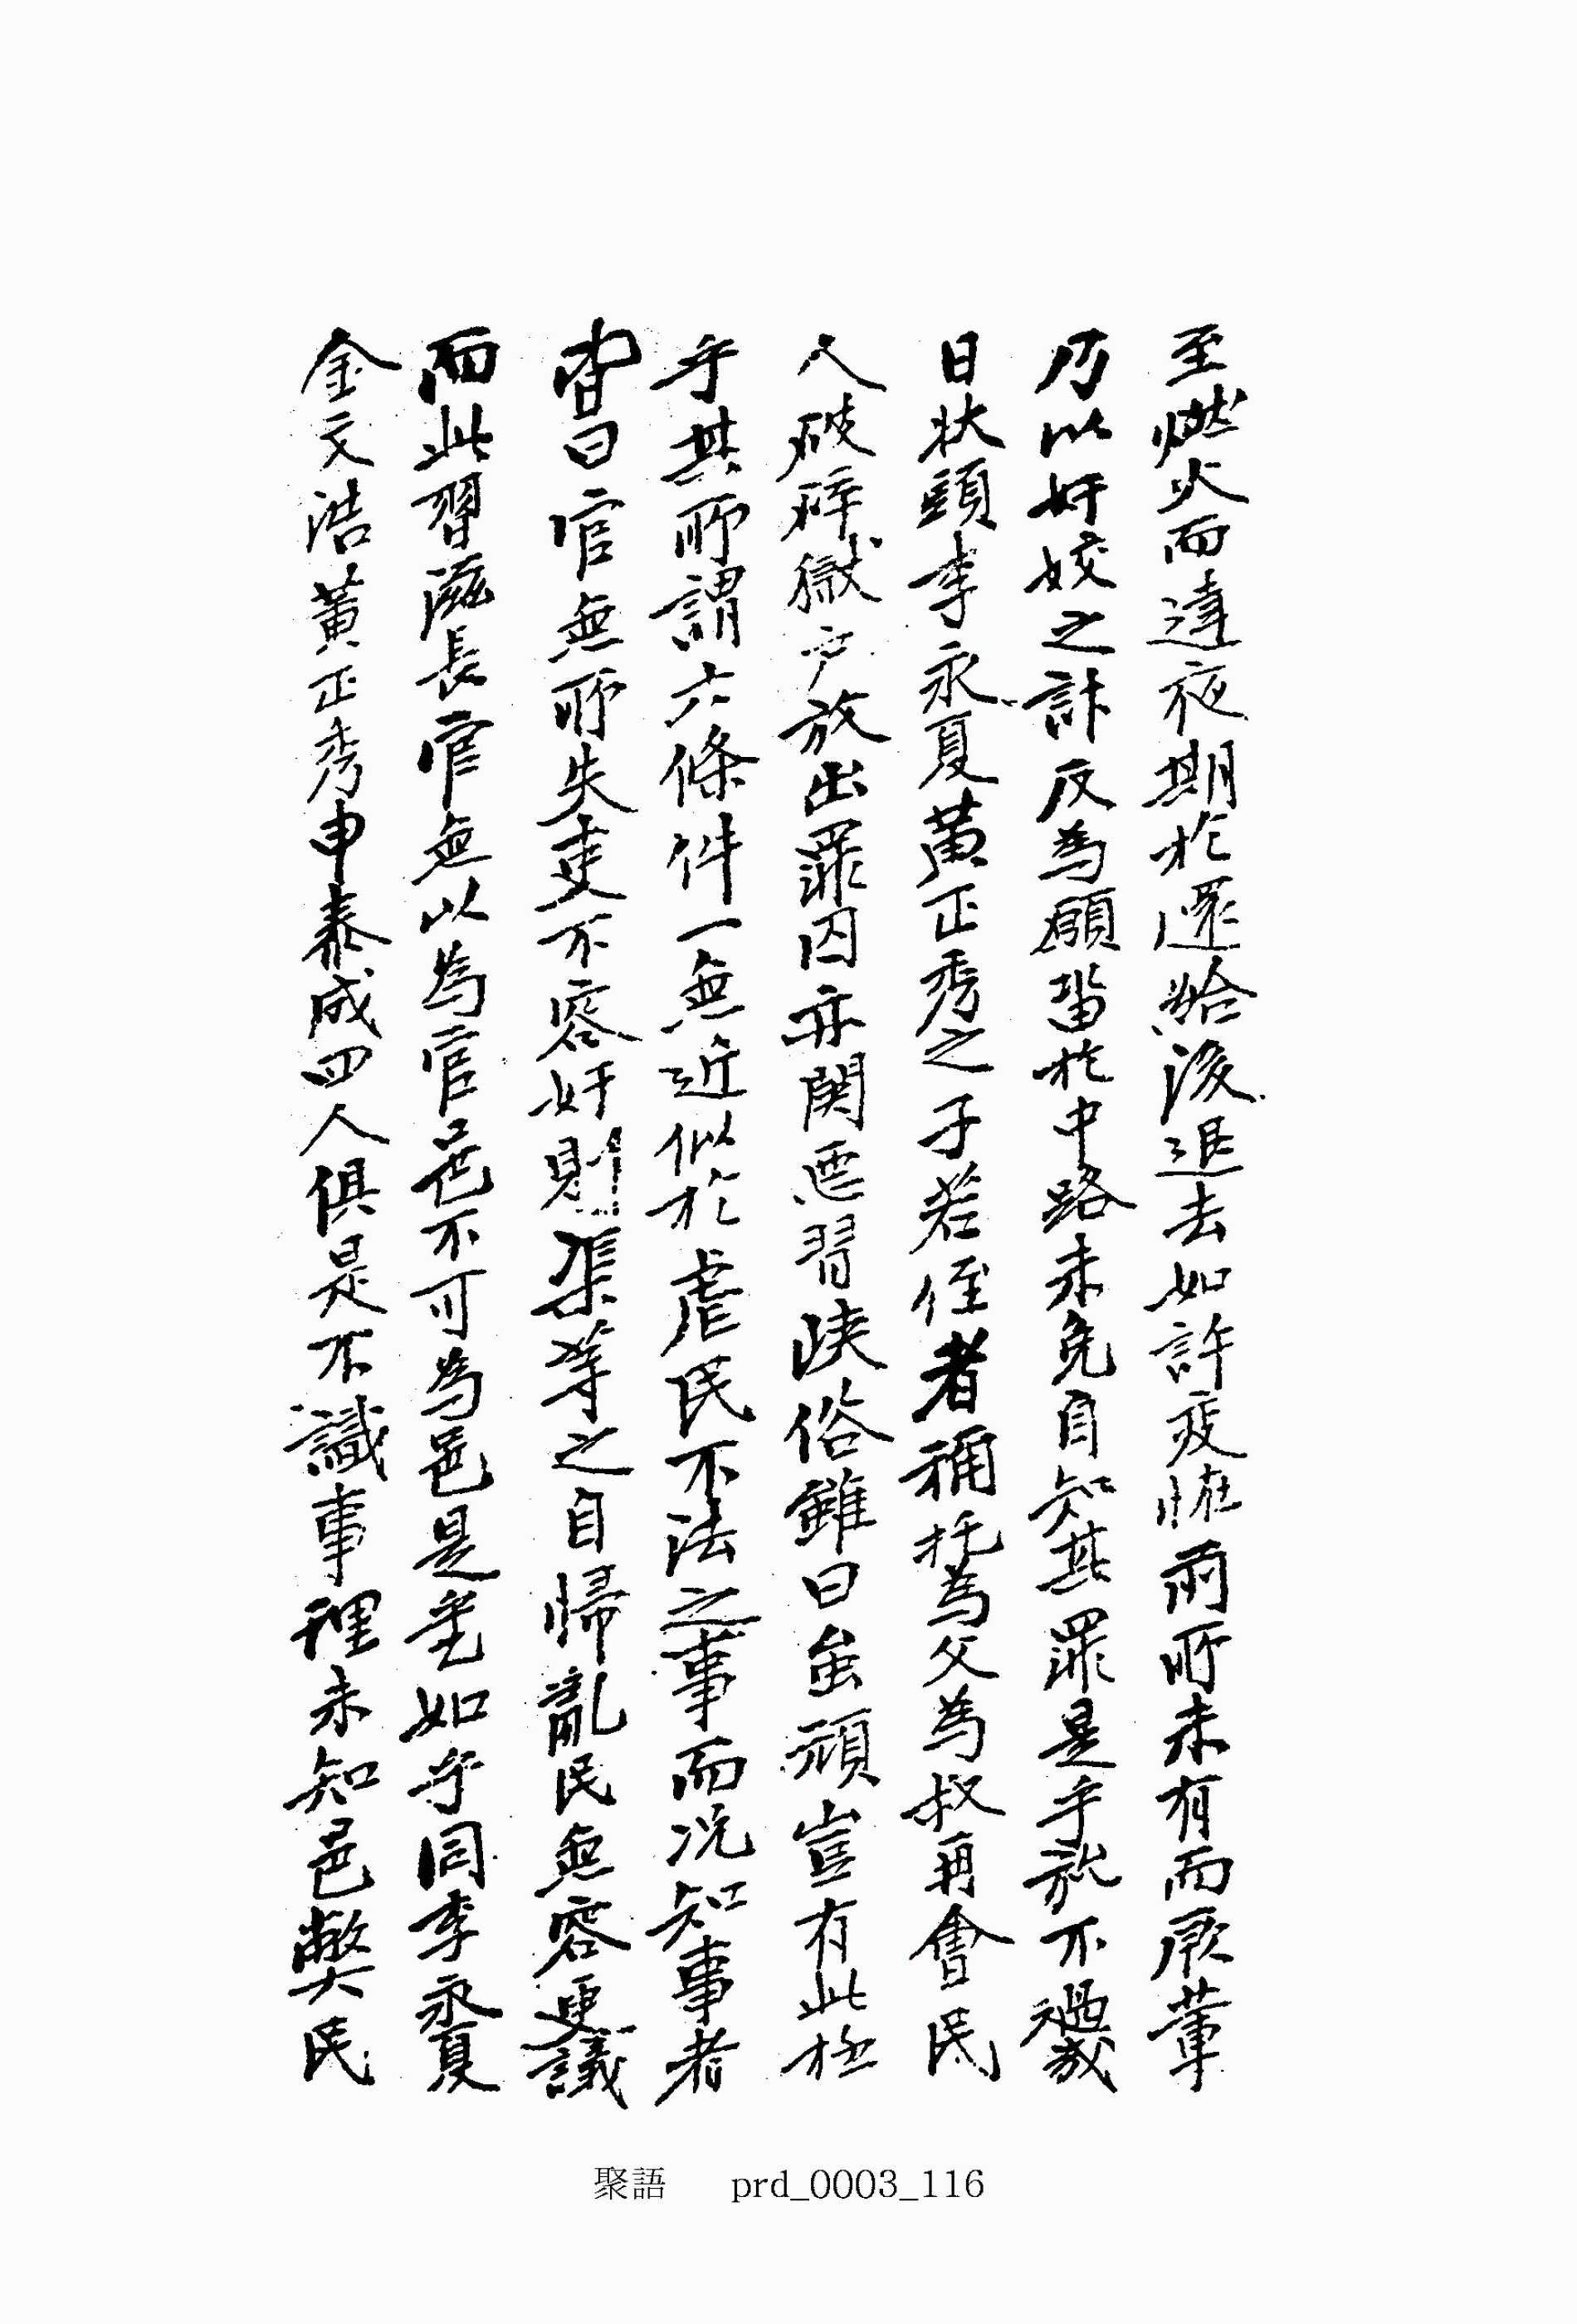 至燃火而達夜期於還給後退去如許變恠前所未有而厥輩
乃以奸狡之計反爲願留於中路未免自知其罪是乎旀不過幾
日狀頭李永夏黃正秀之子若侄者稱托爲父爲叔再會民
人破碎獄戶放出罪囚亦關悪習峽俗雖曰蚩頑豈有此極
乎其所謂六條件一無近似於虐民不法之事而況知事者
皆曰官無所失吏不容奸則渠等之自歸亂民無容更議
而此習滋長官無以爲官邑不可爲邑是置如乎同李永夏
金文浩黃正秀申泰成四人俱是不識事理未知邑弊民
聚語 prd_0003_116